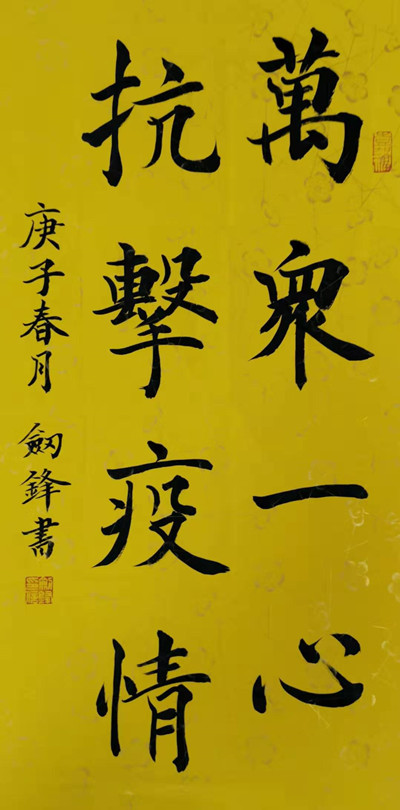 萬衆一心
抗擊疫情
庚子春月 劔鋒書